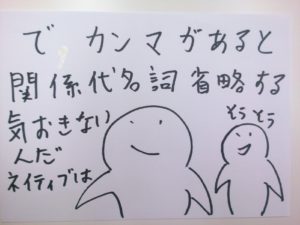 で カンマがあると
関係代名詞省略する
気おきない
んだ
ネイティブは
そうそう